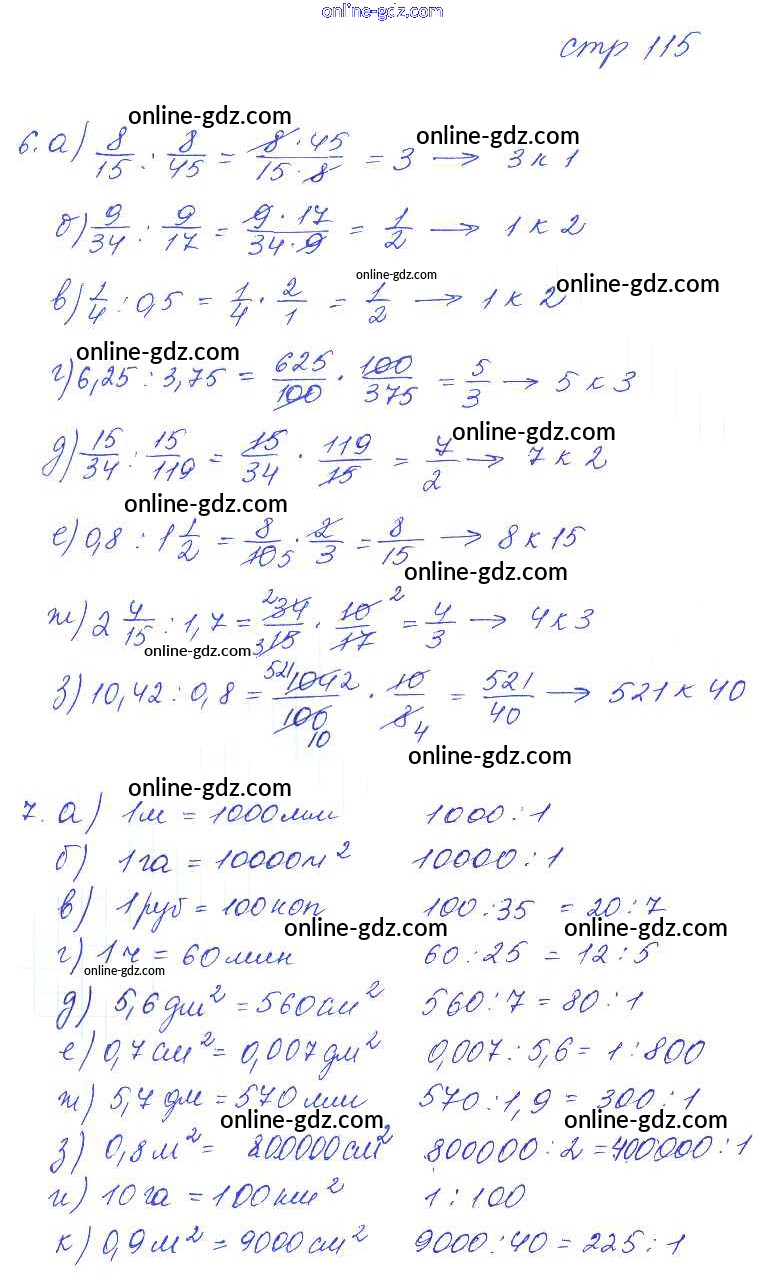 online-gdz.com
стр 115
online-gdz.com
online-gdz.com
6. а) 8/15 : 8/45 = 8·45/15·8 = 3 → 3 к 1
б) 9/34 : 9/17 = 9·17/34·9 = 1/2 → 1 к 2
online-gdz.com
online-gdz.com
в) 1/4 : 0,5 = 1/4 · 2/1 = 1/2 → 1 к 2
online-gdz.com
г) 6,25 : 3,75 = 625/100 · 100/375 = 5/3 → 5 к 3
online-gdz.com
д) 15/34 : 15/119 = 15/34 · 119/15 = 7/2 → 7 к 2
online-gdz.com
е) 0,8 : 1 1/2 = 8/10 5 · 2/3 = 8/15 → 8 к 15
online-gdz.com
ж) 2 4/15 : 1,7 = 2 34/3 15 · 10 2/17 = 4/3 → 4 к 3
online-gdz.com
з) 10,42 : 0,8 = 521 1042/100 10 · 10/8 4 = 521/40 → 521 к 40
online-gdz.com
online-gdz.com
7. а) 1м = 1000мм 1000 : 1
б) 1га = 10000м² 10000 : 1
в) 1руб = 100коп 100 : 35 = 20 : 7
online-gdz.com
online-gdz.com
г) 1ч = 60мин 60 : 25 = 12 : 5
online-gdz.com
online-gdz.com
д) 5,6дм² = 560см² 560 : 7 = 80 : 1
е) 0,7см² = 0,007дм² 0,007 : 5,6 = 1 : 800
ж) 5,7дм = 570мм 570 : 1,9 = 300 : 1
online-gdz.com
online-gdz.com
з) 0,8м² = 800000см² 800000 : 2 = 400000 : 1
и) 10га = 100км² 1 : 100
к) 0,9м² = 9000см² 9000 : 40 = 225 : 1